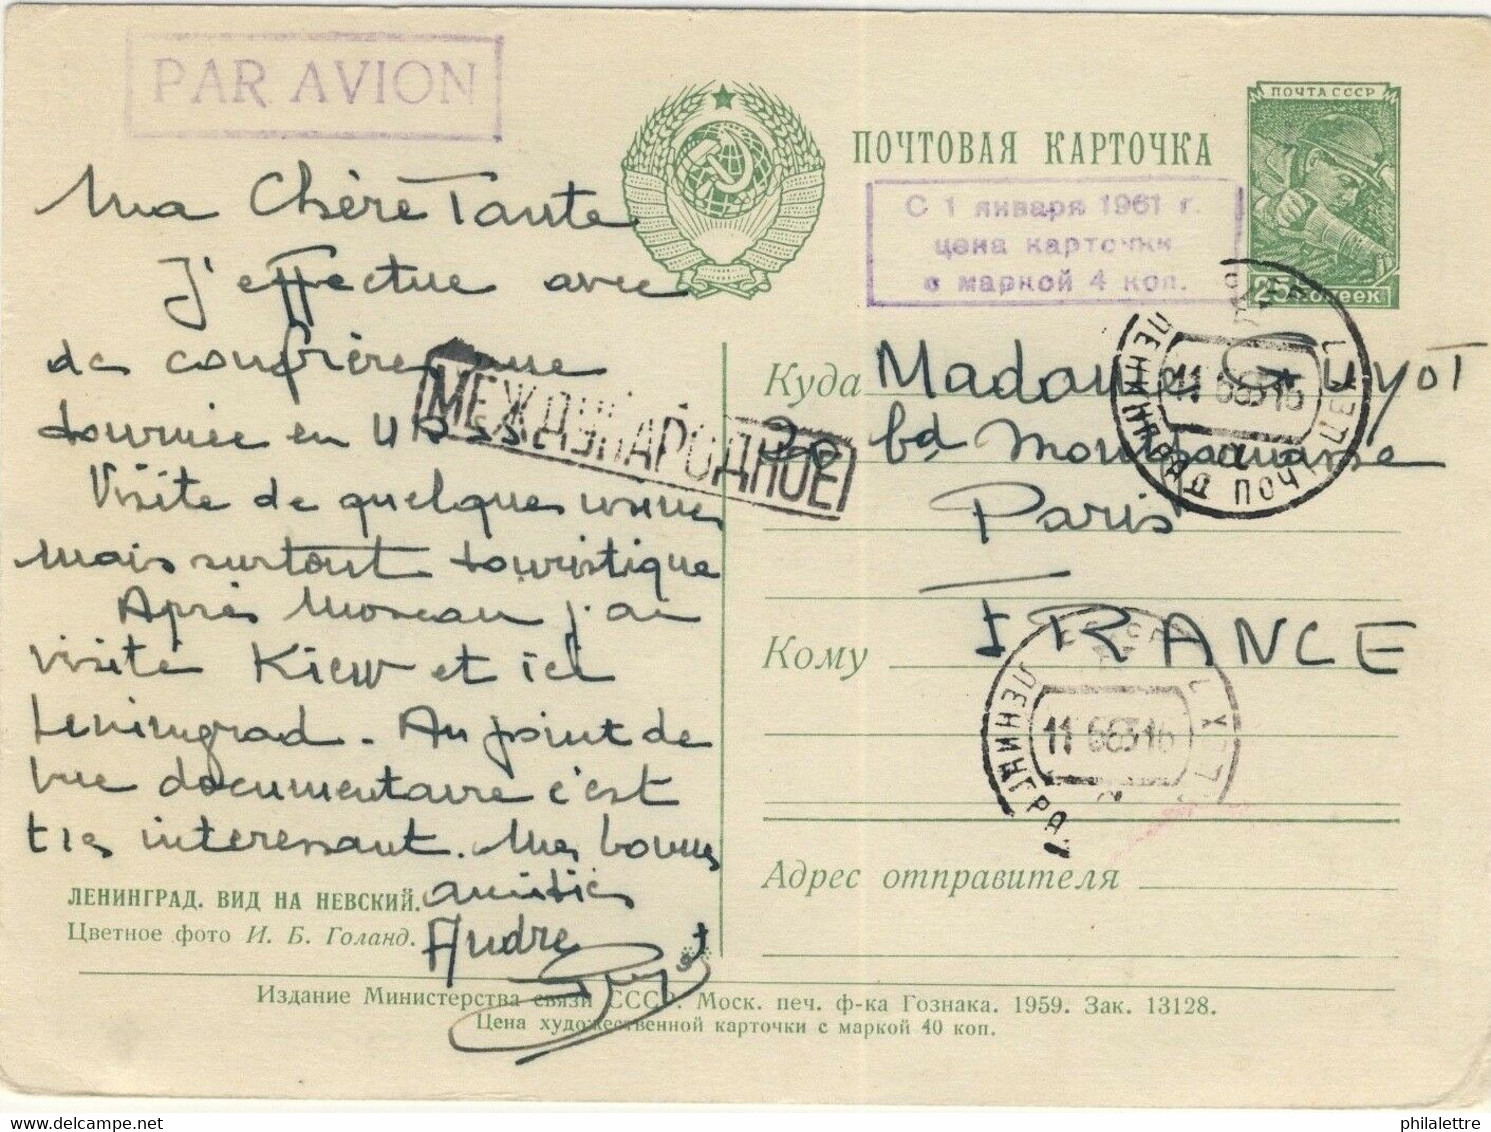 PAR AVION
ПОЧТА СССР
ПОЧТОВАЯ КАРТОЧКА
С 1 января 1961 г.
цена карточки
с маркой 4 коп.
25 копеек
Ma Chère Tante
J'effectue avec
des confrères une
tournée en URSS.
Visite de quelques usines
mais surtout touristique
Après Moscou j'ai
visité Kiew et ici
Leningrad. Au point de
vue documentaire c'est
très interessant. Mes bonnes
amitiés
Andre
МЕЖДУНАРОДНОЕ
Куда Madame Guyot
20 bd Montparnasse
Paris
Кому FRANCE
ЛЕНИНГРАД ПОЧТАМТ
11 6 63 16
ЛЕНИНГРАД
11 6 63 16
Адрес отправителя
ЛЕНИНГРАД. ВИД НА НЕВСКИЙ.
Цветное фото И. Б. Голанд.
Издание Министерства связи СССР. Моск. печ. ф-ка Гознака. 1959. Зак. 13128.
Цена художественной карточки с маркой 40 коп.
philalettre